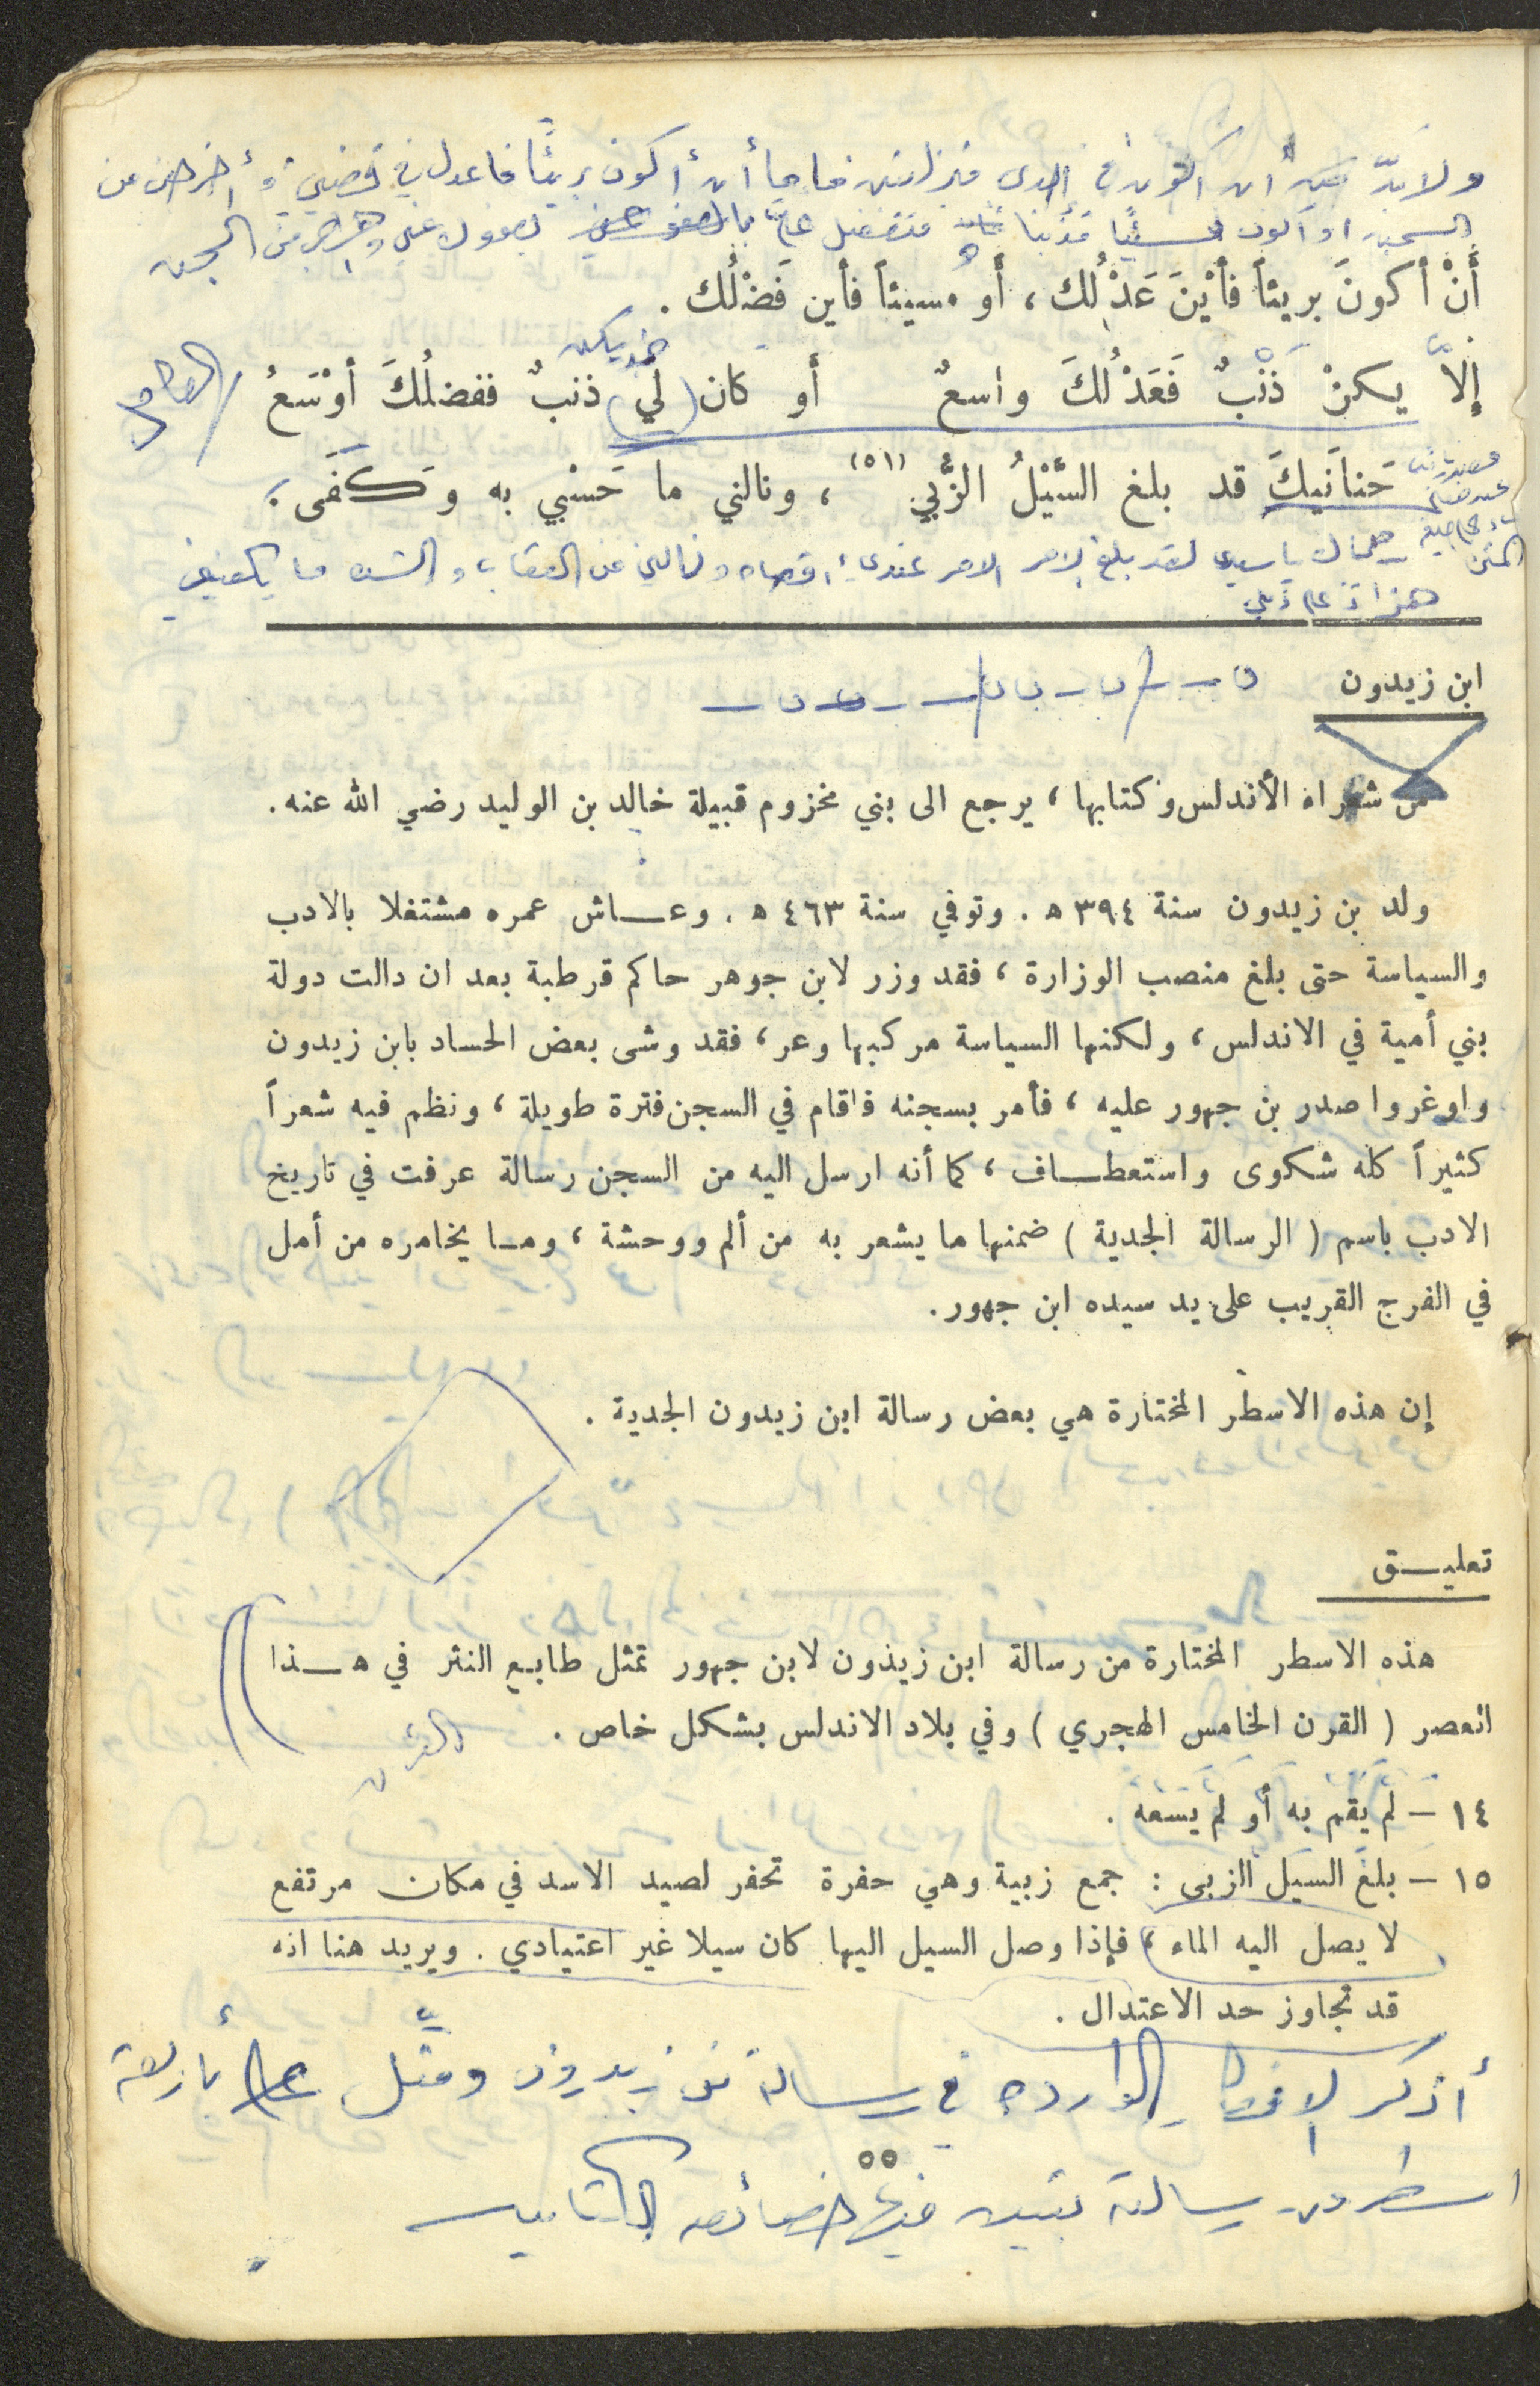 ولا بدّ أن أكون في إحدى منزلتين فاما أن أكون بريئاً فاعدل في قضيتي وأخرجني من
السجن او أكون مسيئاً مذنباً فتفضل عليّ بالعفو عني من السجن
أَنْ أكونَ بريئاً فأيْنَ عَدْلُك ، أَو مسيئاً فأين فَضْلُك .
إلاّ يكنْ ذَنْبٌ فَعَدْلُكَ واسعٌ أَو كان (لي) ذنبٌ ففضلُكَ أوْسَعُ
حَنانَيكَ قد بلغ السَّيْلُ الزُّبي (٥١) ، ونالني ما حَسْبي به وكَفَى .
يا سيدي لقد بلغ الامر عندي أقصاه ونالني من العقاب ما يكفيني
ابن زيدون
من شعراء الأندلس وكتابها ، يرجع الى بني مخزوم قبيلة خالد بن الوليد رضي الله عنه .
ولد بن زيدون سنة ٣٩٤ ه . وتوفي سنة ٤٦٣ ه . وعاش عمره مشتغلا بالادب
والسياسة حتى بلغ منصب الوزارة ، فقد وزر لابن جوهر حاكم قرطبة بعد ان دالت دولة
بني أمية في الاندلس ، ولكنها السياسة مركبها وعر ، فقد وشى بعض الحساد بابن زيدون
واوغروا صدر بن جهور عليه ، فأمر بسجنه فاقام في السجن فترة طويلة ، ونظم فيه شعراً
كثيراً كله شكوى واستعطاف ، كما أنه ارسل اليه من السجن رسالة عرفت في تاريخ
الادب باسم ( الرسالة الجدية ) ضمنها ما يشعر به من ألم ووحشة ، وما يخامره من أمل
في الفرج القريب على يد سيده ابن جهور .
إن هذه الاسطر المختارة هي بعض رسالة ابن زيدون الجدية .
تعليق
هذه الاسطر المختارة من رسالة ابن زيذون لابن جهور تمثل طابع النثر في هذا
العصر ( القرن الخامس الهجري ) وفي بلاد الاندلس بشكل خاص .
١٤ – لم يقم به أو لم يسعه .
١٥ – بلغ السيل الزبى : جمع زبية وهي حفرة تحفر لصيد الاسد في مكان مرتفع
لا يصل اليه الماء ، فإذا وصل السيل اليها كان سيلا غير اعتيادي . ويريد هنا انه
قد تجاوز حد الاعتدال .
أذكر الواردة في رسالة زيدون ومثّل بأربعة
٥٥
اسطر من رسالة تتبين فيها خصائص